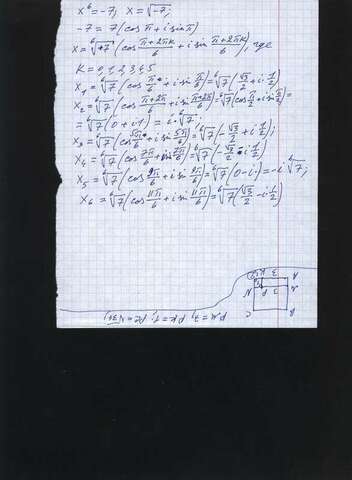 x⁶ = -7; x = ⁶√-7;
-7 = 7(cos π + i sin π)
x = ⁶√7 (cos (π+2πk)/6 + i sin (π+2πk)/6), где
k = 0, 1, 2, 3, 4, 5
x₁ = ⁶√7 (cos π/6 + i sin π/6) = ⁶√7 (√3/2 + i·1/2)
x₂ = ⁶√7 (cos (π+2π)/6 + i sin (π+2π)/6) = ⁶√7 (cos π/2 + i sin π/2) =
= ⁶√7 (0 + i·1) = i·⁶√7;
x₃ = ⁶√7 (cos 5π/6 + i sin 5π/6) = ⁶√7 (-√3/2 + i·1/2);
x₄ = ⁶√7 (cos 7π/6 + i sin 7π/6) = ⁶√7 (-√3/2 - i·1/2)
x₅ = ⁶√7 (cos 9π/6 + i sin 9π/6) = ⁶√7 (0 - i·) = -i ⁶√7;
x₆ = ⁶√7 (cos 11π/6 + i sin 11π/6) = ⁶√7 (√3/2 - i·1/2)
A
3
N
P
3
C
B